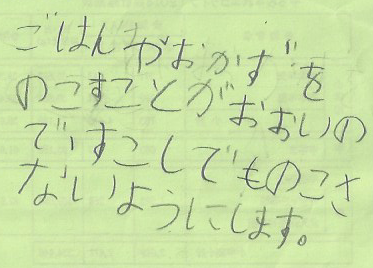 ごはんやおかずを
のこすことがおおいの
ですこしでものこさ
ないようにします。